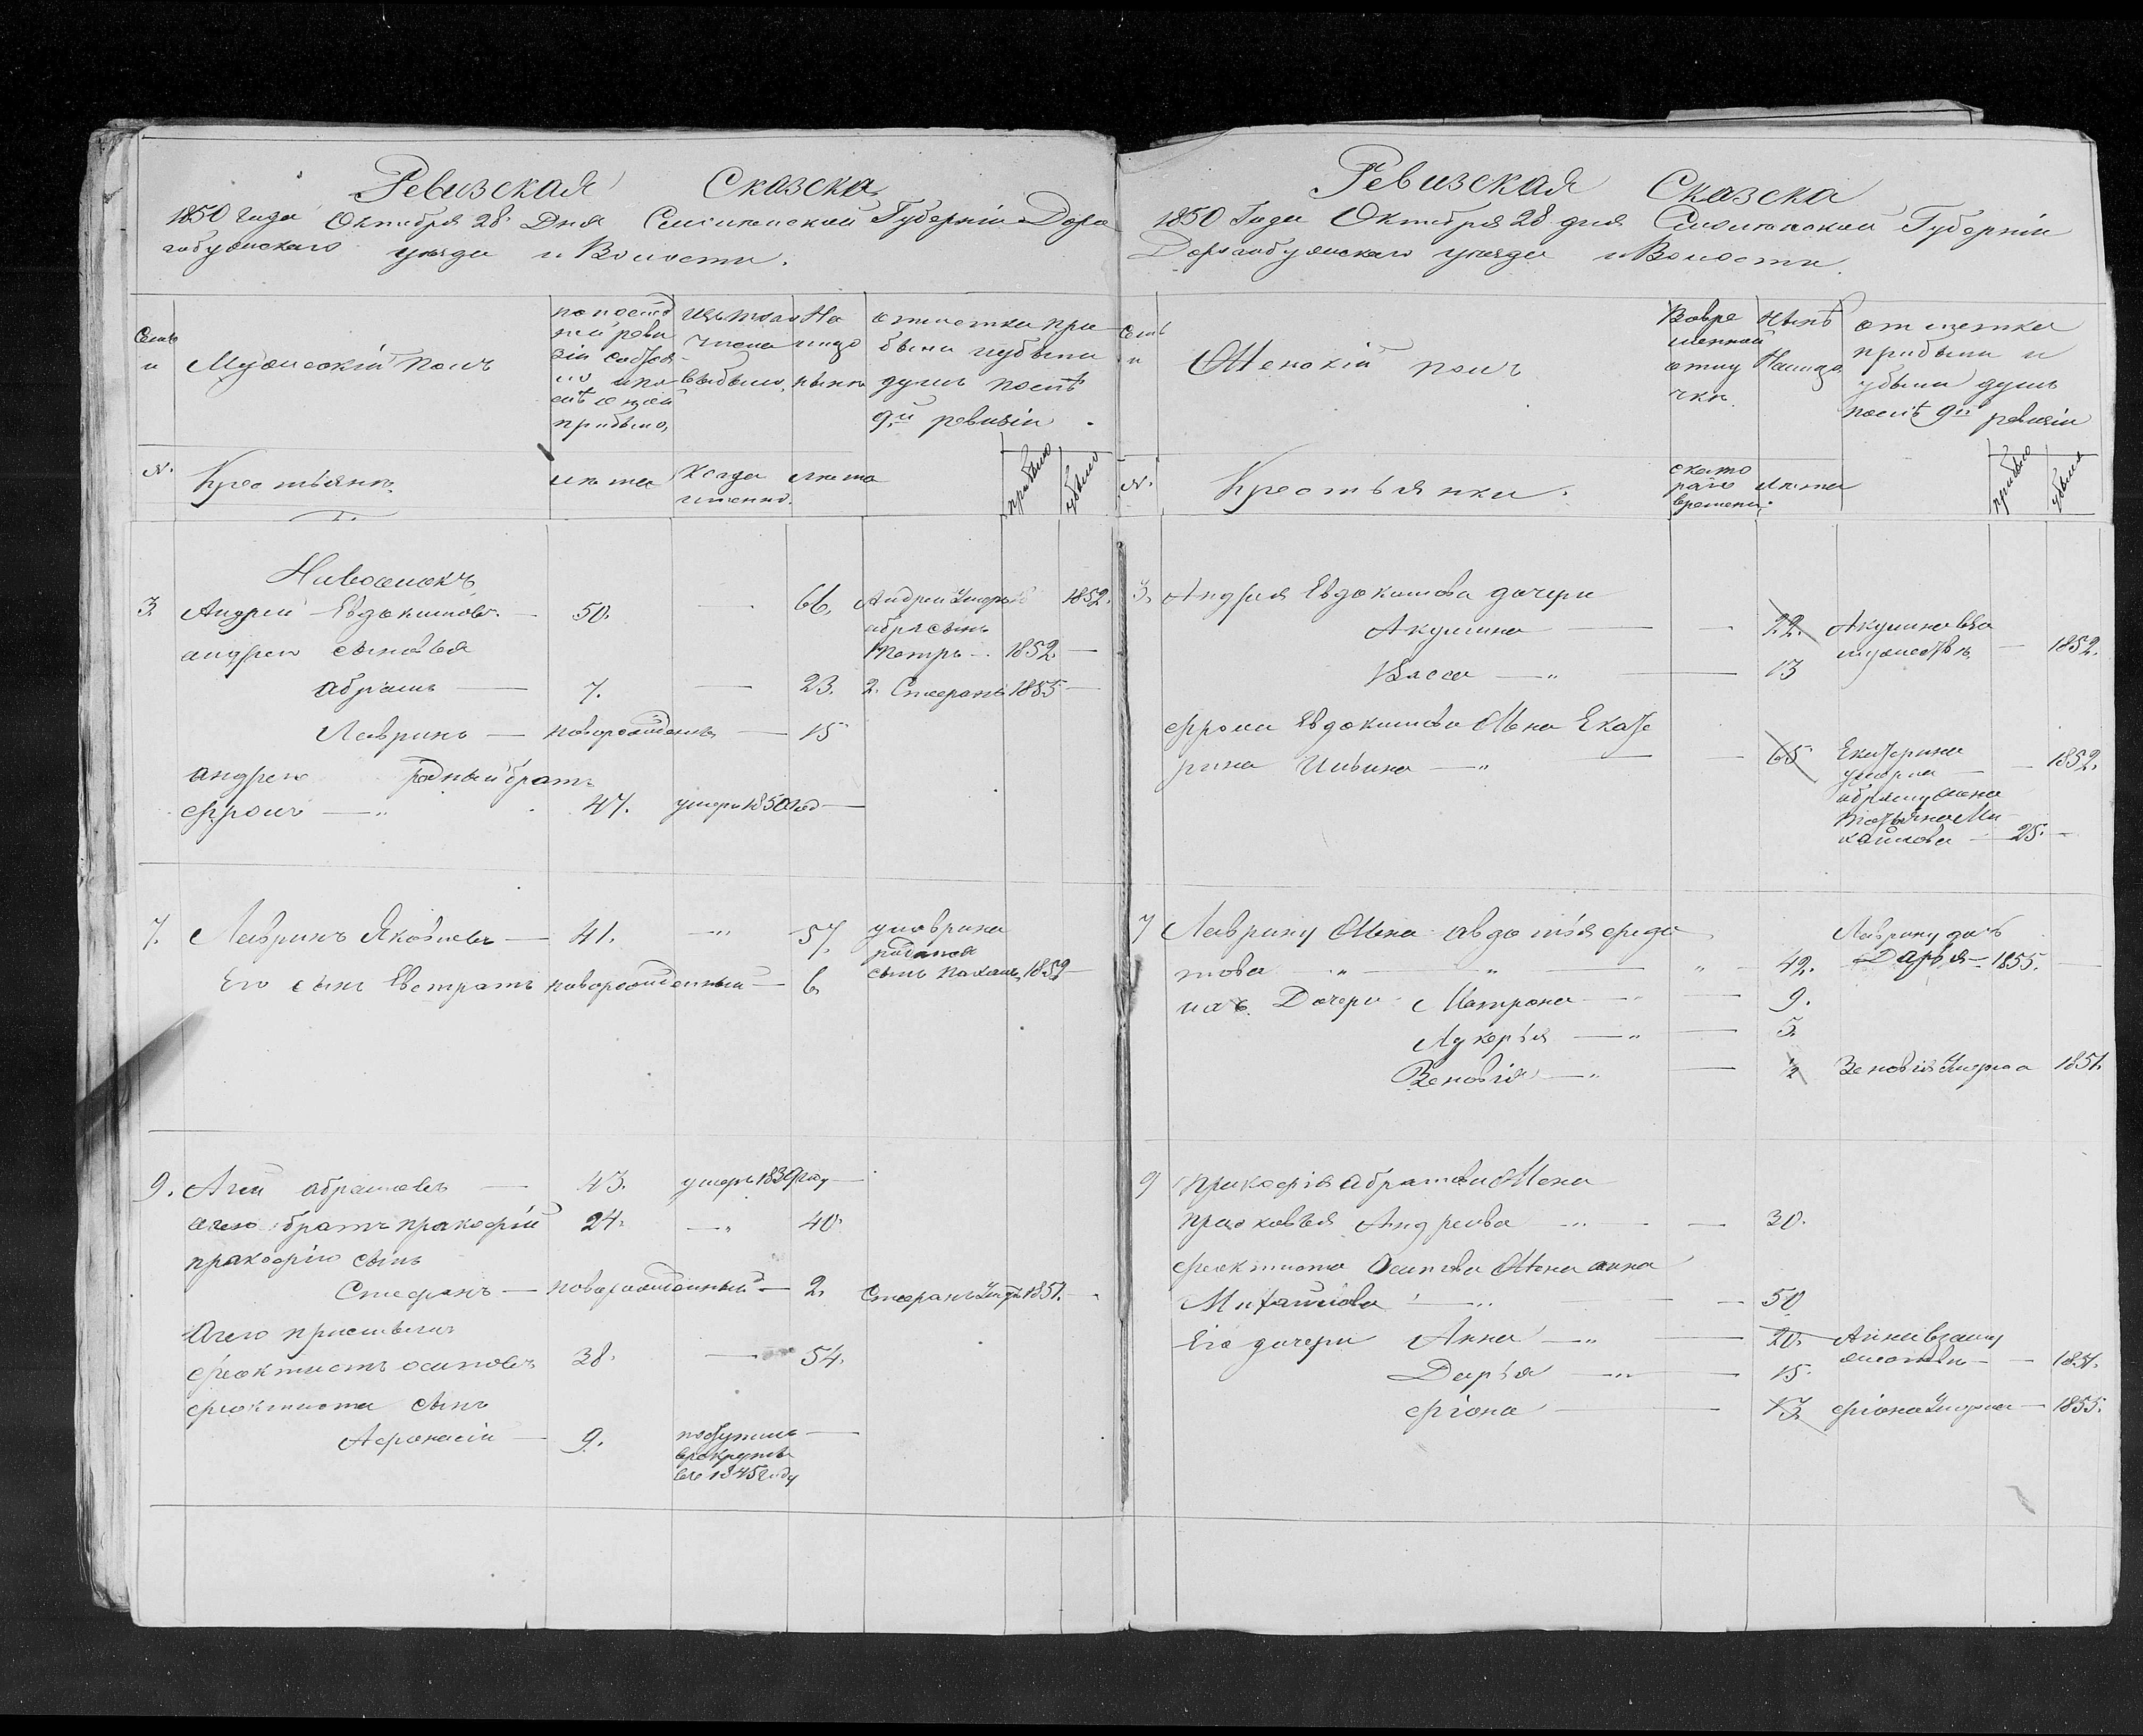 Ревизская Сказска
1850 года Октября 28. Дня Смоленской Губерніи Доро
гобужскаго уезда и Волости.
Семьи
Мужескій полъ
по послѣд
ней реви
зіи состоя
ло и по
слѣ оной
прибыло,
Изъ того
числа
выбыло,
На
лицо
нынѣ
отметка при
были и убыли
душъ послѣ
9й ревизіи
№.
Крестьянъ
лета
Когда
именно.
лета
прибыло
убыло
3. Андрей Евдокимовъ — 50. — 66. Андрей Умеръ 1852.
абра сынъ
андрея сыновья Петръ — 1852. —
абрамъ — 7. — 23. 2. Стефанъ 1855 —
Лавринъ — новорожденъ — 15
андрея родный брат
фролъ — " 47. умеръ 1850 год —
7. Лавринъ Яковлевъ — 41. — " 57. у лаврина
родился
Его сынъ Евстратъ новорожденный — 6. сынъ 1852 —
9. Агей абрамовъ — 43. умеръ 1839 году —
агею братъ пракофій 24. — " 40.
пракофію сынъ
Стефанъ — новорожденный — 2. Стефанъ Умеръ 1851.
Агею приемышъ
феоктистъ осиповъ 38. — 54.
феоктиста сынъ
Афонасій — 9. поступилъ —
врекруты
въ 1845 году
Ревизская Сказска
1850 Года Октября 28 дня Смоленской Губерніи
Дорогобужскаго уезда и Волости.
Семьи
Женскій полъ
Вовре
менной
отлу
чкѣ
Нынѣ
Налицо
отметка
прибыли и
убыли душъ
послѣ 9й ревизіи
№.
Крестьянки.
скато
раго
времени.
Лета
прибыло
убыло
3. Андрея Евдокимова дочери
Акулина — 22. Акулина вза
мужество — 1852.
Васса — " — 13
фрола Евдокимова Жена Екате
рина Ивина — " — 65 Екатерина
умерла — 1852.
абраму жена
Татьяна Ми
хайлова — 25. —
7 Лаврину Жена авдотья федо Лаврину дочь
това " — " — " — 42. Дарья — 1855. —
ихъ Дочери Матрона — 9.
Лукерья — " — 5.
Зеновія — " — ½ Зеновія Умерла 1851.
9 пракофія Абрамова Жена
прасковья Андреева — " — 30.
феоктиста Осипова Жена анна
Михайлова — " — 50
Его дочери Анна — " — 20. Анна взаму
жество — 1851.
Дарья — " — 15.
фіона — 13. фіона Умерла — 1855.